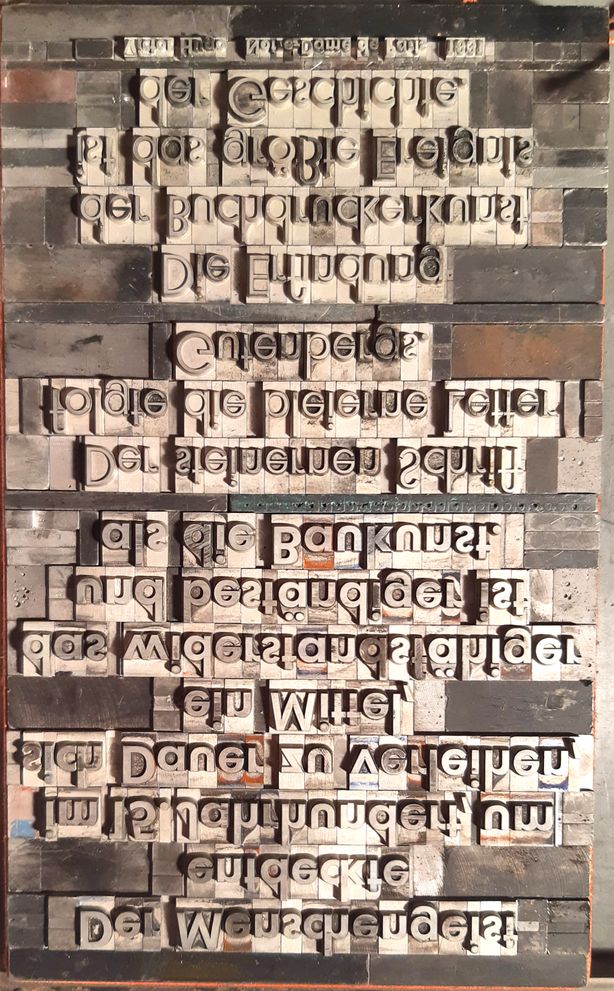 Der Menschengeist
entdeckte
im 15. Jahrhundert, um
sich Dauer zu verleihen,
ein Mittel,
das widerstandsfähiger
und beständiger ist
als die Baukunst.
Der steinernen Schrift
folgte die bleierne Letter
Gutenbergs.
Die Erfindung
der Buchdruckerkunst
ist das größte Ereignis
der Geschichte.
Victor Hugo Notre-Dame de Paris 1831